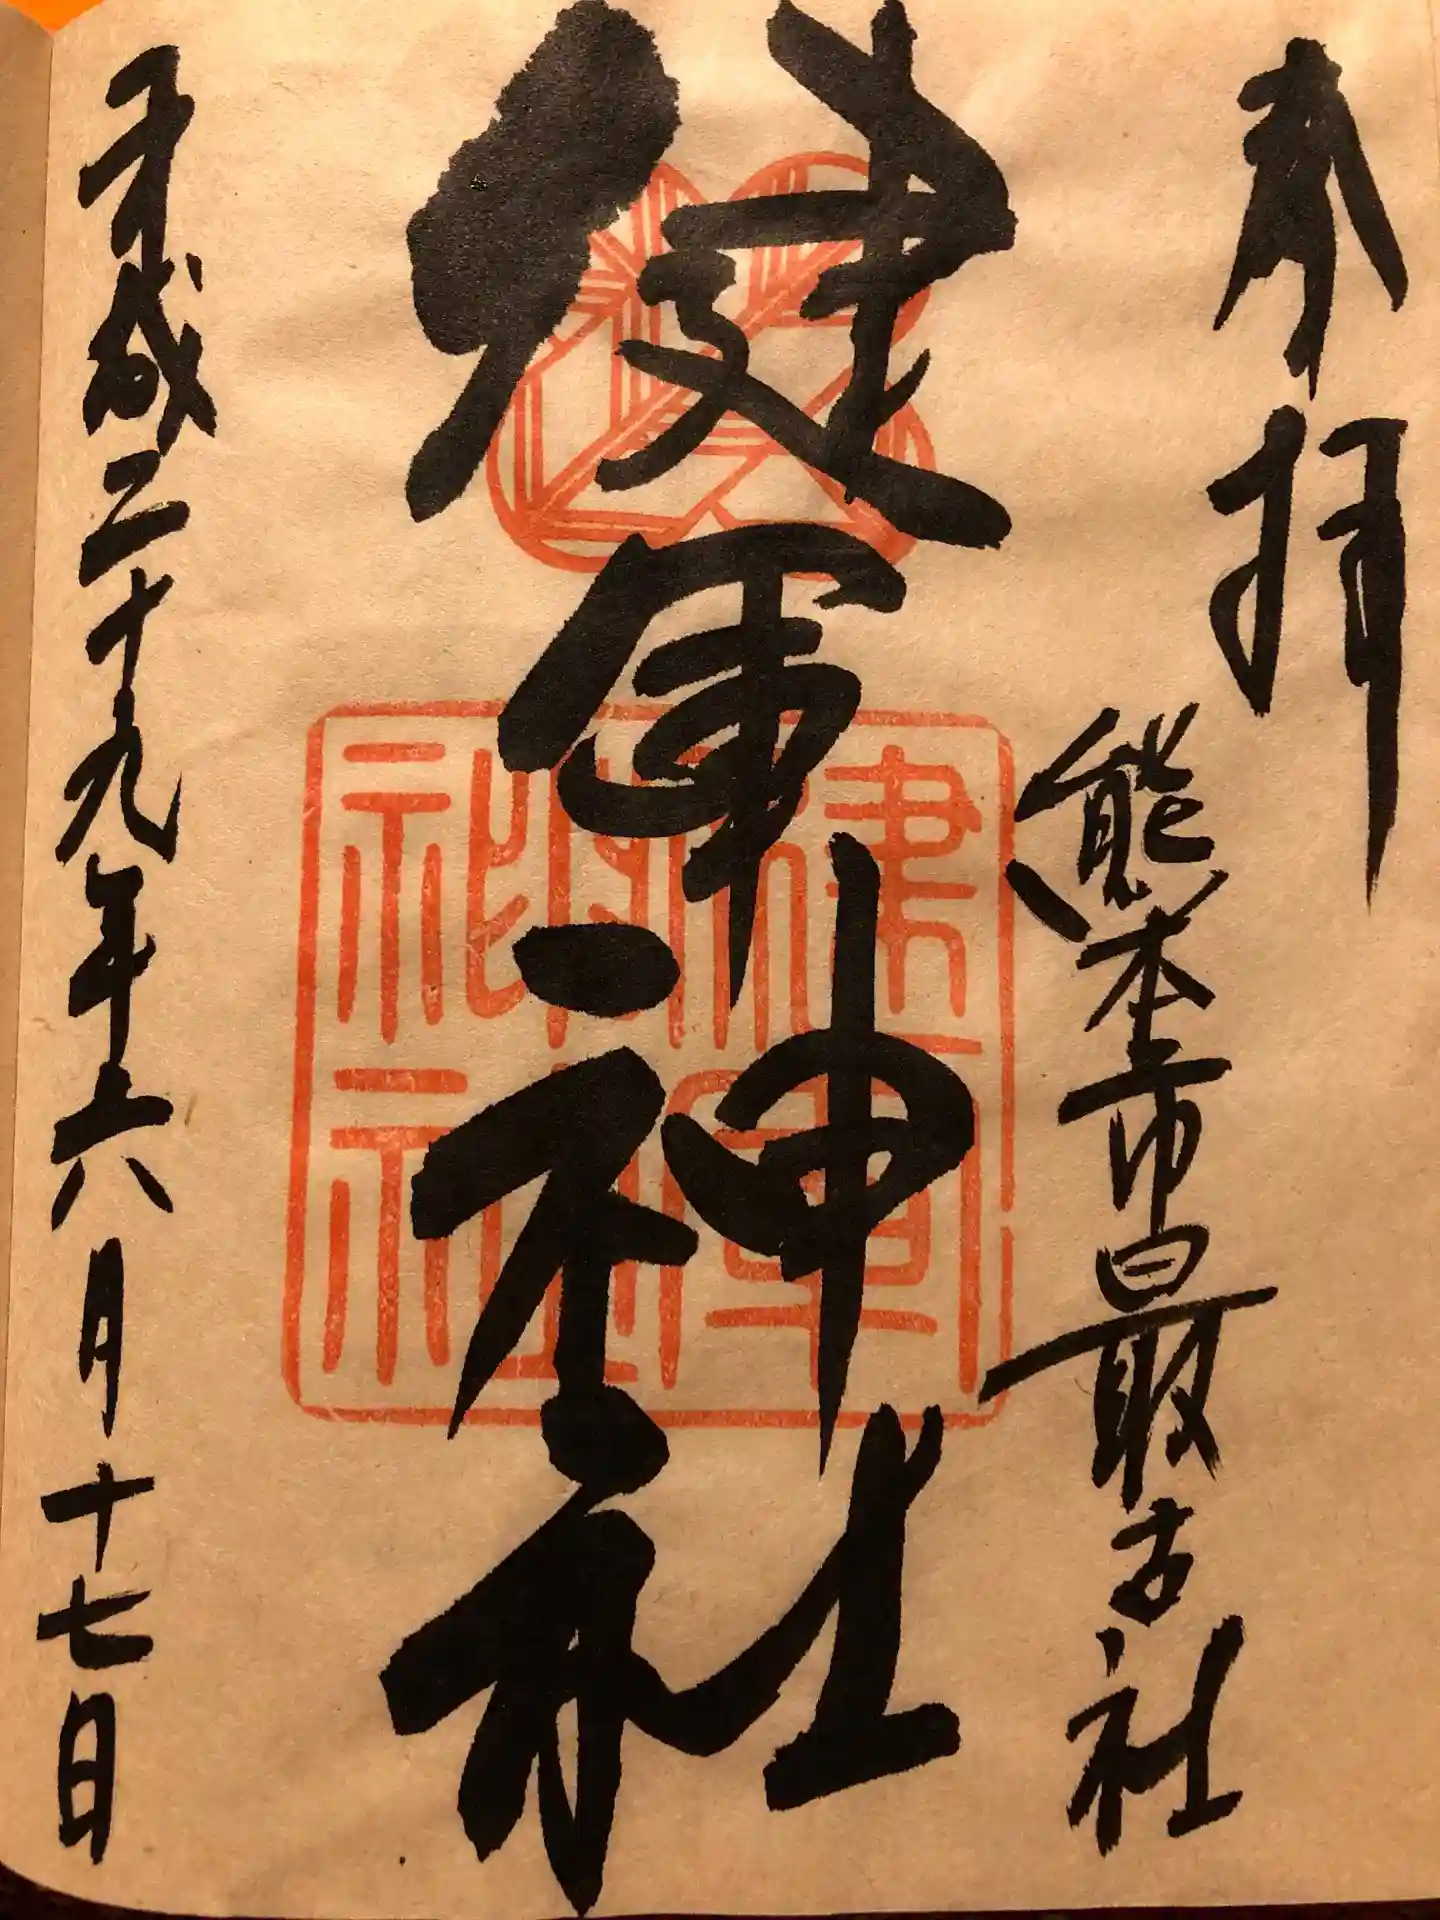 奉拝
熊本市最古社
健軍神社
健軍
神社
平成二十九年六月十七日